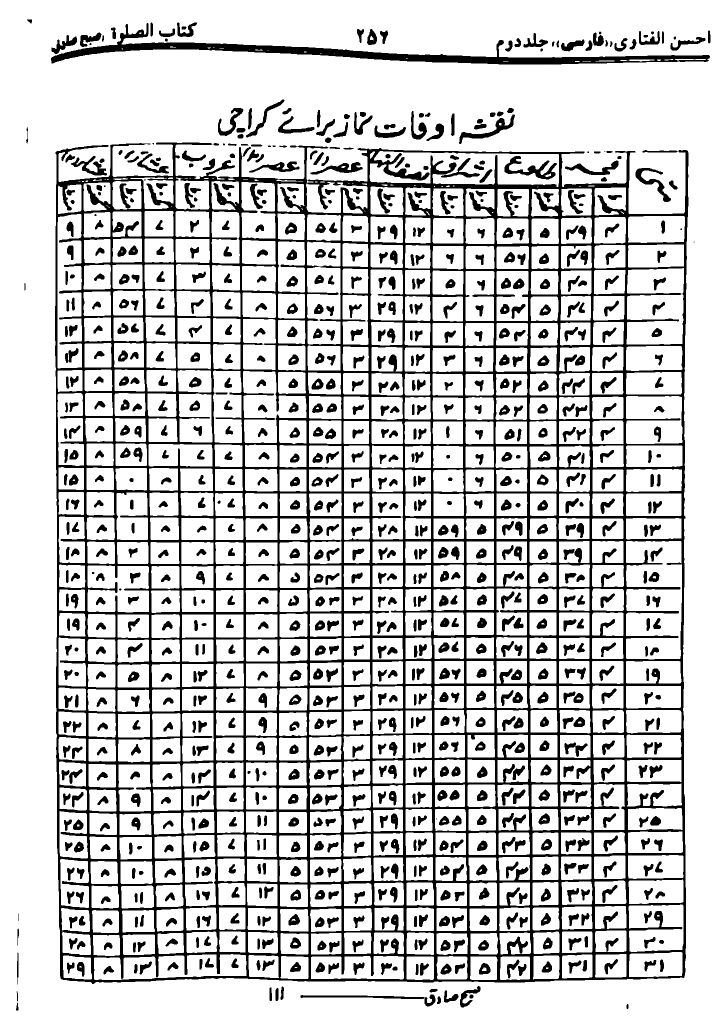 احسن الفتاوی ،،فارسی،، جلد دوم ۲۵۶ کتاب الصلوة ،صبح صادق
نقشہ اوقات نماز برائے کراچی
مئی فجر طلوع اشراق نصف النہار عصر(۱) عصر(۲) غروب عشاء(۱) عشاء(۲)
گھنٹہ منٹ گھنٹہ منٹ گھنٹہ منٹ گھنٹہ منٹ گھنٹہ منٹ گھنٹہ منٹ گھنٹہ منٹ گھنٹہ منٹ گھنٹہ منٹ
۱ ۴ ۴۹ ۵ ۵۶ ۶ ۶ ۱۲ ۲۹ ۳ ۵۷ ۵ ۸ ۷ ۲ ۷ ۵۴ ۸ ۹
۲ ۴ ۴۹ ۵ ۵۶ ۶ ۶ ۱۲ ۲۹ ۳ ۵۷ ۵ ۸ ۷ ۲ ۷ ۵۵ ۸ ۹
۳ ۴ ۴۸ ۵ ۵۵ ۶ ۵ ۱۲ ۲۹ ۳ ۵۷ ۵ ۸ ۷ ۳ ۷ ۵۶ ۸ ۱۰
۴ ۴ ۴۷ ۵ ۵۴ ۶ ۴ ۱۲ ۲۹ ۳ ۵۶ ۵ ۸ ۷ ۴ ۷ ۵۶ ۸ ۱۱
۵ ۴ ۴۶ ۵ ۵۴ ۶ ۴ ۱۲ ۲۹ ۳ ۵۶ ۵ ۸ ۷ ۴ ۷ ۵۷ ۸ ۱۲
۶ ۴ ۴۵ ۵ ۵۳ ۶ ۳ ۱۲ ۲۹ ۳ ۵۶ ۵ ۸ ۷ ۵ ۷ ۵۸ ۸ ۱۲
۷ ۴ ۴۴ ۵ ۵۲ ۶ ۲ ۱۲ ۲۸ ۳ ۵۵ ۵ ۸ ۷ ۵ ۷ ۵۸ ۸ ۱۲
۸ ۴ ۴۳ ۵ ۵۲ ۶ ۲ ۱۲ ۲۸ ۳ ۵۵ ۵ ۸ ۷ ۵ ۷ ۵۸ ۸ ۱۳
۹ ۴ ۴۲ ۵ ۵۱ ۶ ۱ ۱۲ ۲۸ ۳ ۵۵ ۵ ۸ ۷ ۶ ۷ ۵۹ ۸ ۱۴
۱۰ ۴ ۴۱ ۵ ۵۰ ۶ ۰ ۱۲ ۲۸ ۳ ۵۴ ۵ ۸ ۷ ۷ ۷ ۵۹ ۸ ۱۵
۱۱ ۴ ۴۱ ۵ ۵۰ ۶ ۰ ۱۲ ۲۸ ۳ ۵۴ ۵ ۸ ۷ ۷ ۸ ۰ ۸ ۱۵
۱۲ ۴ ۴۰ ۵ ۵۰ ۶ ۰ ۱۲ ۲۸ ۳ ۵۴ ۵ ۸ ۷ ۷ ۸ ۱ ۸ ۱۶
۱۳ ۴ ۳۹ ۵ ۴۹ ۵ ۵۹ ۱۲ ۲۸ ۳ ۵۴ ۵ ۸ ۷ ۸ ۸ ۱ ۸ ۱۷
۱۴ ۴ ۳۹ ۵ ۴۹ ۵ ۵۹ ۱۲ ۲۸ ۳ ۵۴ ۵ ۸ ۷ ۸ ۸ ۲ ۸ ۱۸
۱۵ ۴ ۳۸ ۵ ۴۸ ۵ ۵۸ ۱۲ ۲۸ ۳ ۵۴ ۵ ۸ ۷ ۹ ۸ ۳ ۸ ۱۸
۱۶ ۴ ۳۷ ۵ ۴۷ ۵ ۵۷ ۱۲ ۲۸ ۳ ۵۳ ۵ ۸ ۷ ۱۰ ۸ ۳ ۸ ۱۹
۱۷ ۴ ۳۷ ۵ ۴۷ ۵ ۵۷ ۱۲ ۲۸ ۳ ۵۳ ۵ ۸ ۷ ۱۰ ۸ ۴ ۸ ۱۹
۱۸ ۴ ۳۷ ۵ ۴۶ ۵ ۵۷ ۱۲ ۲۸ ۳ ۵۳ ۵ ۸ ۷ ۱۱ ۸ ۴ ۸ ۲۰
۱۹ ۴ ۳۶ ۵ ۴۵ ۵ ۵۶ ۱۲ ۲۸ ۳ ۵۳ ۵ ۸ ۷ ۱۲ ۸ ۵ ۸ ۲۰
۲۰ ۴ ۳۵ ۵ ۴۵ ۵ ۵۶ ۱۲ ۲۸ ۳ ۵۳ ۵ ۹ ۷ ۱۲ ۸ ۶ ۸ ۲۱
۲۱ ۴ ۳۵ ۵ ۴۵ ۵ ۵۶ ۱۲ ۲۹ ۳ ۵۳ ۵ ۹ ۷ ۱۲ ۸ ۷ ۸ ۲۲
۲۲ ۴ ۳۴ ۵ ۴۵ ۵ ۵۶ ۱۲ ۲۹ ۳ ۵۳ ۵ ۹ ۷ ۱۳ ۸ ۸ ۸ ۲۳
۲۳ ۴ ۳۴ ۵ ۴۴ ۵ ۵۵ ۱۲ ۲۹ ۳ ۵۳ ۵ ۱۰ ۷ ۱۴ ۸ ۸ ۸ ۲۴
۲۴ ۴ ۳۳ ۵ ۴۴ ۵ ۵۵ ۱۲ ۲۹ ۳ ۵۳ ۵ ۱۰ ۷ ۱۴ ۸ ۹ ۸ ۲۴
۲۵ ۴ ۳۳ ۵ ۴۴ ۵ ۵۵ ۱۲ ۲۹ ۳ ۵۳ ۵ ۱۱ ۷ ۱۵ ۸ ۹ ۸ ۲۵
۲۶ ۴ ۳۳ ۵ ۴۳ ۵ ۵۴ ۱۲ ۲۹ ۳ ۵۳ ۵ ۱۱ ۷ ۱۵ ۸ ۱۰ ۸ ۲۵
۲۷ ۴ ۳۳ ۵ ۴۳ ۵ ۵۴ ۱۲ ۲۹ ۳ ۵۳ ۵ ۱۱ ۷ ۱۵ ۸ ۱۰ ۸ ۲۶
۲۸ ۴ ۳۲ ۵ ۴۲ ۵ ۵۳ ۱۲ ۲۹ ۳ ۵۳ ۵ ۱۲ ۷ ۱۶ ۸ ۱۱ ۸ ۲۶
۲۹ ۴ ۳۲ ۵ ۴۲ ۵ ۵۳ ۱۲ ۲۹ ۳ ۵۳ ۵ ۱۲ ۷ ۱۶ ۸ ۱۱ ۸ ۲۷
۳۰ ۴ ۳۱ ۵ ۴۲ ۵ ۵۳ ۱۲ ۲۹ ۳ ۵۳ ۵ ۱۳ ۷ ۱۷ ۸ ۱۲ ۸ ۲۸
۳۱ ۴ ۳۱ ۵ ۴۲ ۵ ۵۳ ۱۲ ۳۰ ۳ ۵۳ ۵ ۱۳ ۷ ۱۷ ۸ ۱۳ ۸ ۲۹
صبح صادق ــــــــ ۱۱۱